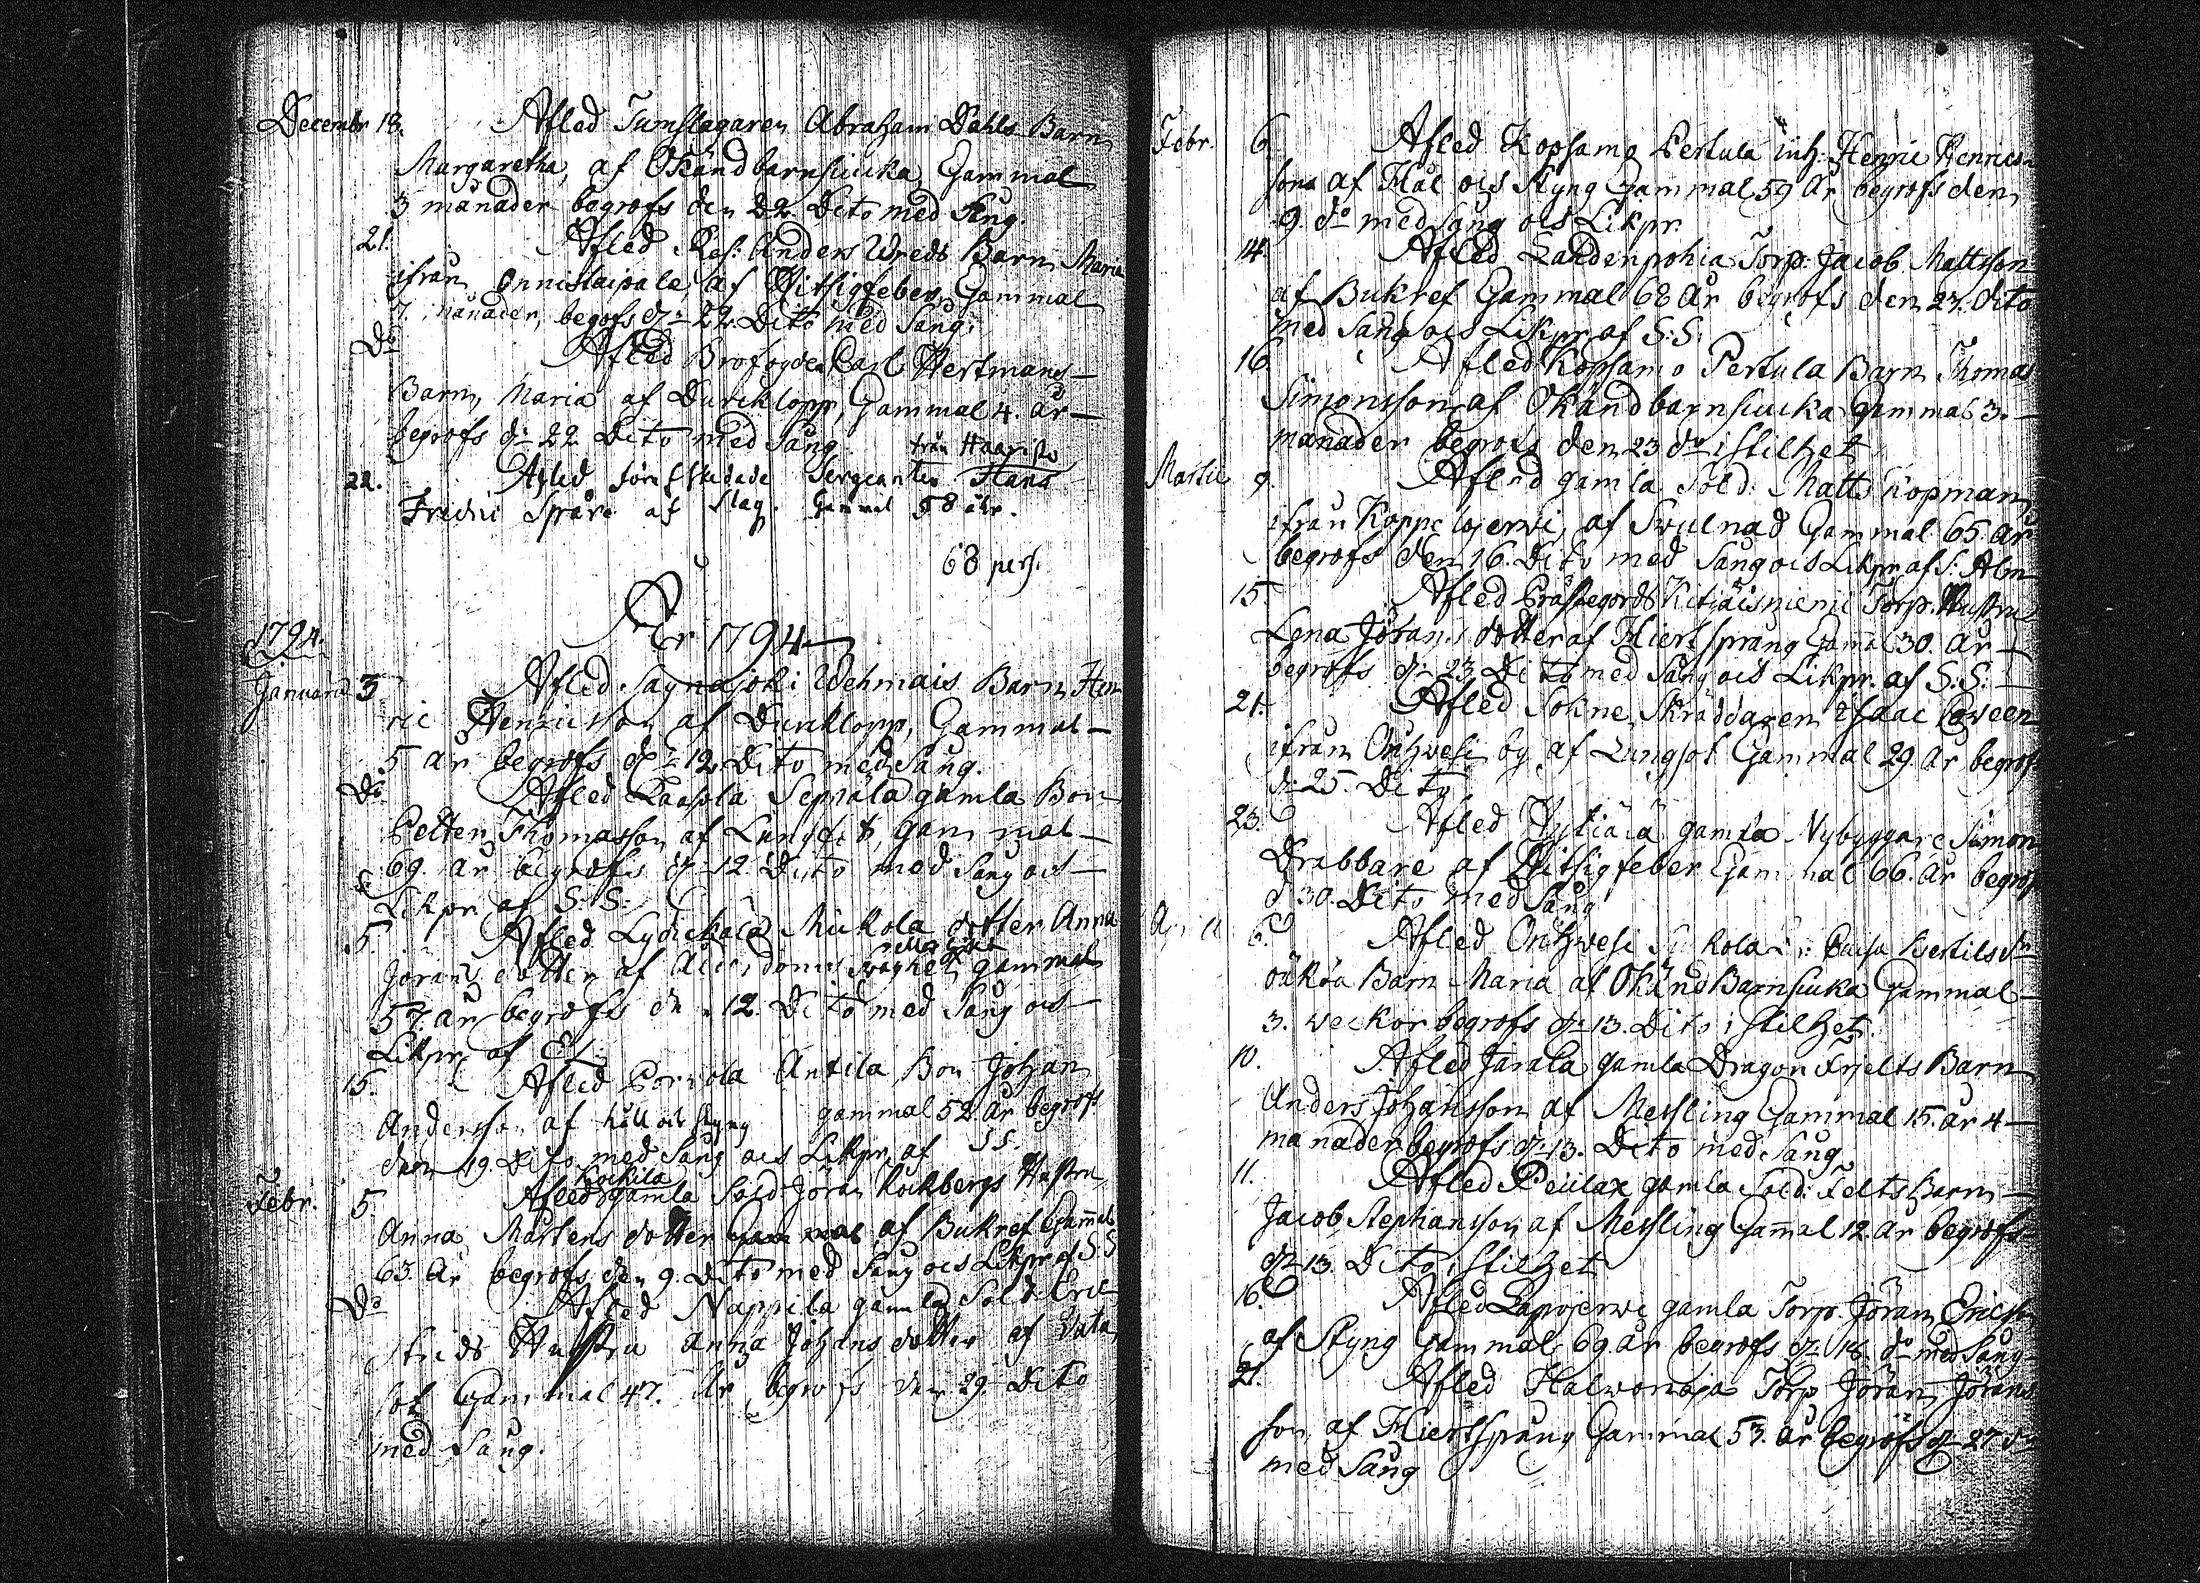 Decembr 18. Afled Tumslagaren Abraham Dahls Barn
Margaretha, af Okänd barnsiucka, Gammal
3 månader begrofs den 22 Dito med Sång.
21. Afled Anders Wreds Barn Maria
ifrån Onnistaipale, af Hitsigfeber, Gammal
7. månader, begrofs d: 22 Dito med Sång.
Do Afled Brofogden Carl Hertmans
Barn, Maria af Durcklopp, Gammal 4. år
begrofs d: 22 Dito med Sång.
från Haaristo
22. Afled förafskedade Sergeanten Hans
Fredric Spåre af Slag. Gammal 58 åhr.
68 pers.
År 1794
1794.
Januarii 3 Afled Saynajoki Wehmais Barn Hen
ric Henricsson af Durcklopp, Gammal
5 år begrofs d: 12 Dito med Sång.
Do Afled Laasola Seppälä gamla Bon
Petter Thomasson af Lungsot, Gammal
69. år begrofs d: 12. Dito med Sång och
Likpr. af S: S:
5. Afled Lydickälä Mickola dotter Anna
Jörans dotter af gammal
57. år begrofs den 12. Dito med Sång och
Likpr. af
15. Afled Antila Bon Johan
Andersson af håll och styng gammal 52 år begrofs
den 19. Dito med Sång och Likpr. af S S.
Kockila
Febr. 5. Afled gamla Sold. Jöran Kockbergs Hustru
Anna Mårtens dotter af Bukref Gammal
63. år begrofs den 9. Dito med Sång och Likpr. af S S
Do Afled Nappila gamla Sold. Eric
Strids Hustru Anna Johans dotter af
sot Gammal 47. år begrofs den 29. Dito
med Sång.
Febr. 6. Afled Kopsamo Pertula inh: Henric Henrics
sons af Hål och Styng Gammal 59 år begrofs den
9. do med Sång och Likpr.
14. Afled Lahdenpohia Torp. Jacob Mattsson
af Bukref Gammal 68 år begrofs den 27. dito
med Sång och Likpr. af S: S:
16. Afled Kopsamo Pertula Barn Thomas
Simonsson af Okänd barnsiucka Gammal 3.
månader begrofs den 23 do i stilhet
Martii 9. Afled gamla Sold. Matts Kopman
ifrån af Swulnad Gammal 65. år
begrofs den 16. Dito med Sång och Likpr. af S: Alm
15. Afled Prästegords Torp. Hustru
Lena Jörans dotter af Hiertsprång Gamal 30. år
begrofs d: 23 Dito med Sång och Likpr. af S. S.
21. Afled Sokne Skräddaren Isaac
ifrån Orihwesi by af Lungsot Gammal 29. år begrofs
d: 25. Dito
23. Afled gamla Nybyggare Simon
Drabbare af Hitsigfeber Gammal 66. år begrofs
d 30. Dito med Sång
Aprill 6. Afled Orihwesi Caisa Bertils dr
oäkta Barn Maria af Okänd Barnsiuka Gammal
3. weckor begrofs d: 13. Dito i stilhet.
10. Afled Järälä gamla Dragon Barn
Anders Johansson af Messling Gammal 15. år 4
månader begrofs d: 13. Dito med Sång
11. Afled gamla Sold. Felts Barn
Jacob Stephansson af Messling Gammal 12. år begrofs
d: 13. Dito i stilhet
16. Afled Lapojerwi gamla Torp. Jöran Ericsson
af Styng Gammal 69. år begrofs d: 18. do med Sång
21. Afled Torp. Jöran Jörans
son af Hiertsprång Gammal 53. år begrofs d: 27 do
med Sång